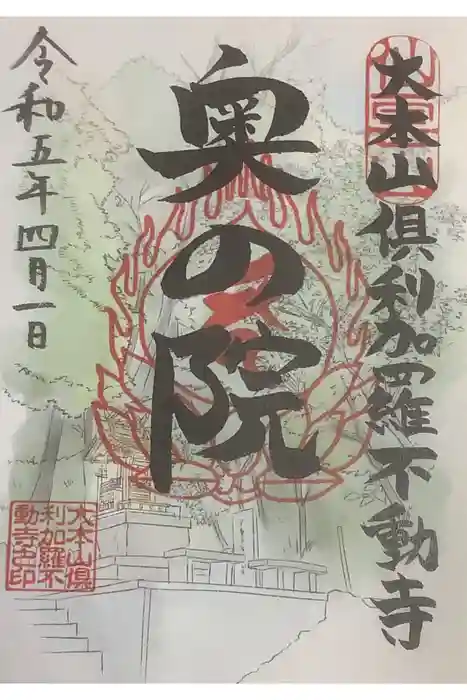 大本山倶利加羅不動寺
奥の院
令和五年四月一日
大本山倶
利加羅不
動寺之印